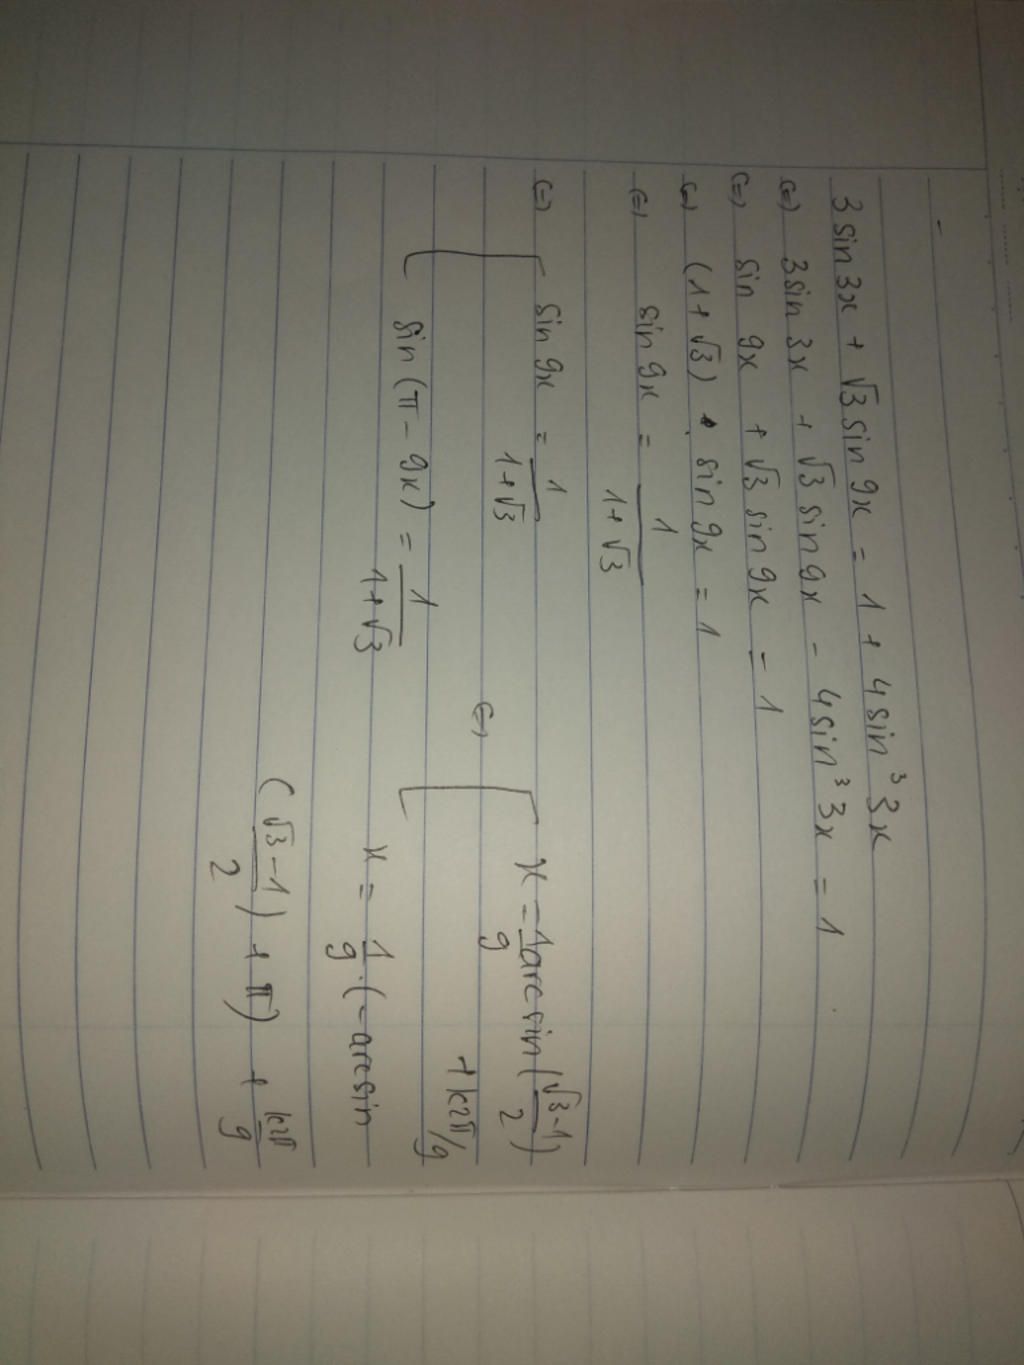 3 sin 3x + √3 sin 9x = 1 + 4 sin³ 3x
(=) 3 sin 3x + √3 sin 9x - 4 sin³ 3x = 1
(=) sin 9x + √3 sin 9x = 1
(=) (1 + √3) • sin 9x = 1
(=) sin 9x = 1/(1+√3)
(=) [ sin 9x = 1/(1+√3)
sin (π - 9x) = 1/(1+√3)
(=) [ x = 1/9 arcsin ((√3-1)/2)
+ k2π/9
x = 1/9 . (- arcsin
((√3-1)/2) + π) + k2π/9